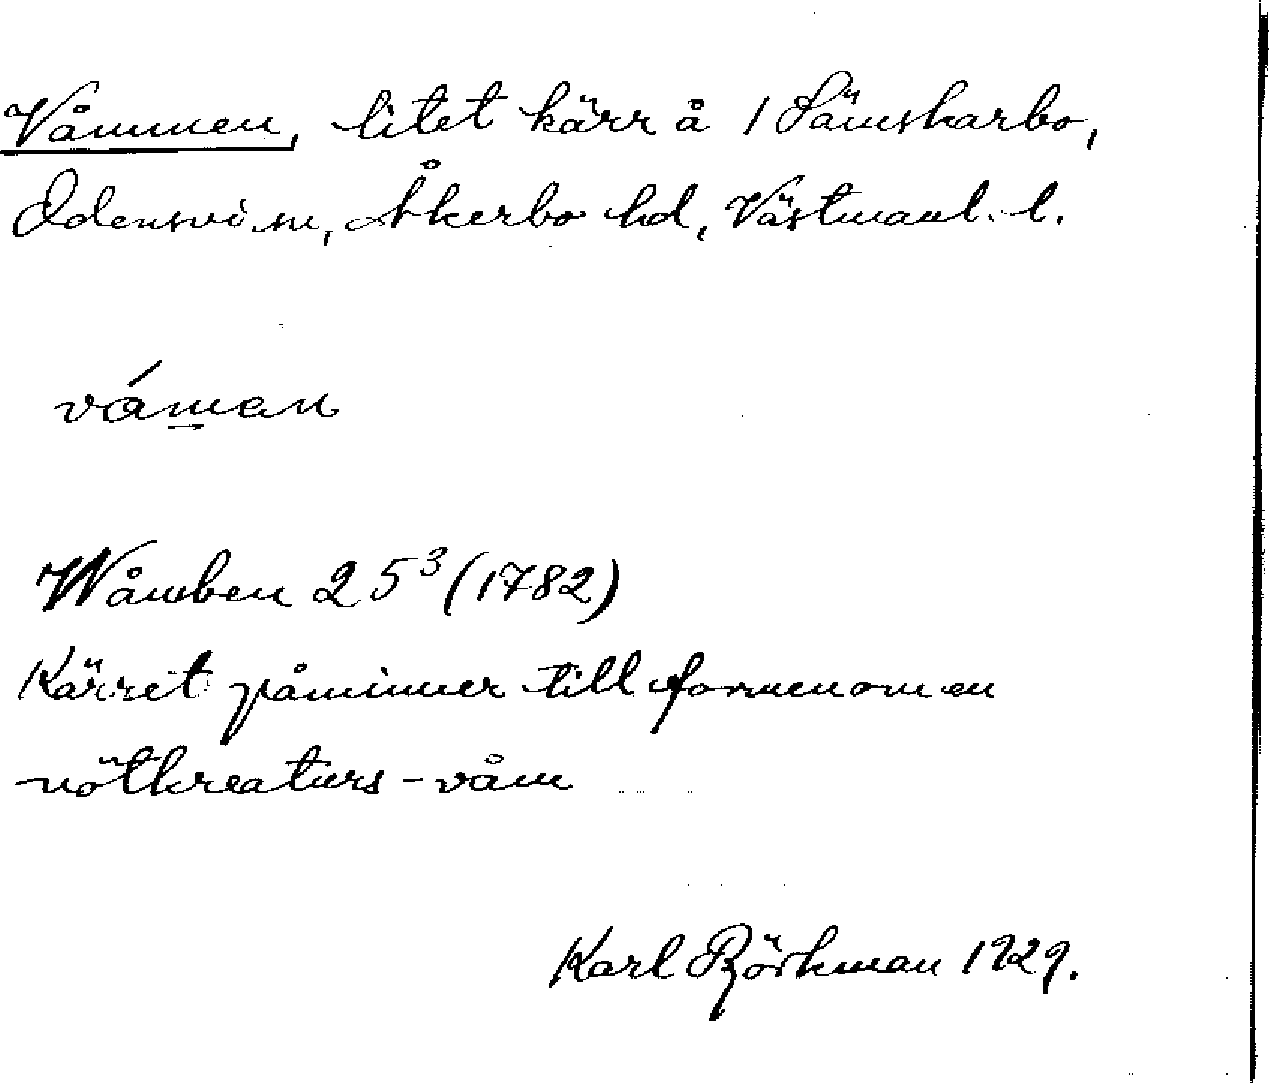 Våmmen, litet kärr å 1 Sämskarbo,
Odensvi sn, Åkerbo hd, Västmanl. l.
váman
Wåmben 2 5³ (1782)
Kärret påminner till formen om en
nötkreaturs-våm
Karl Björkman 1929.